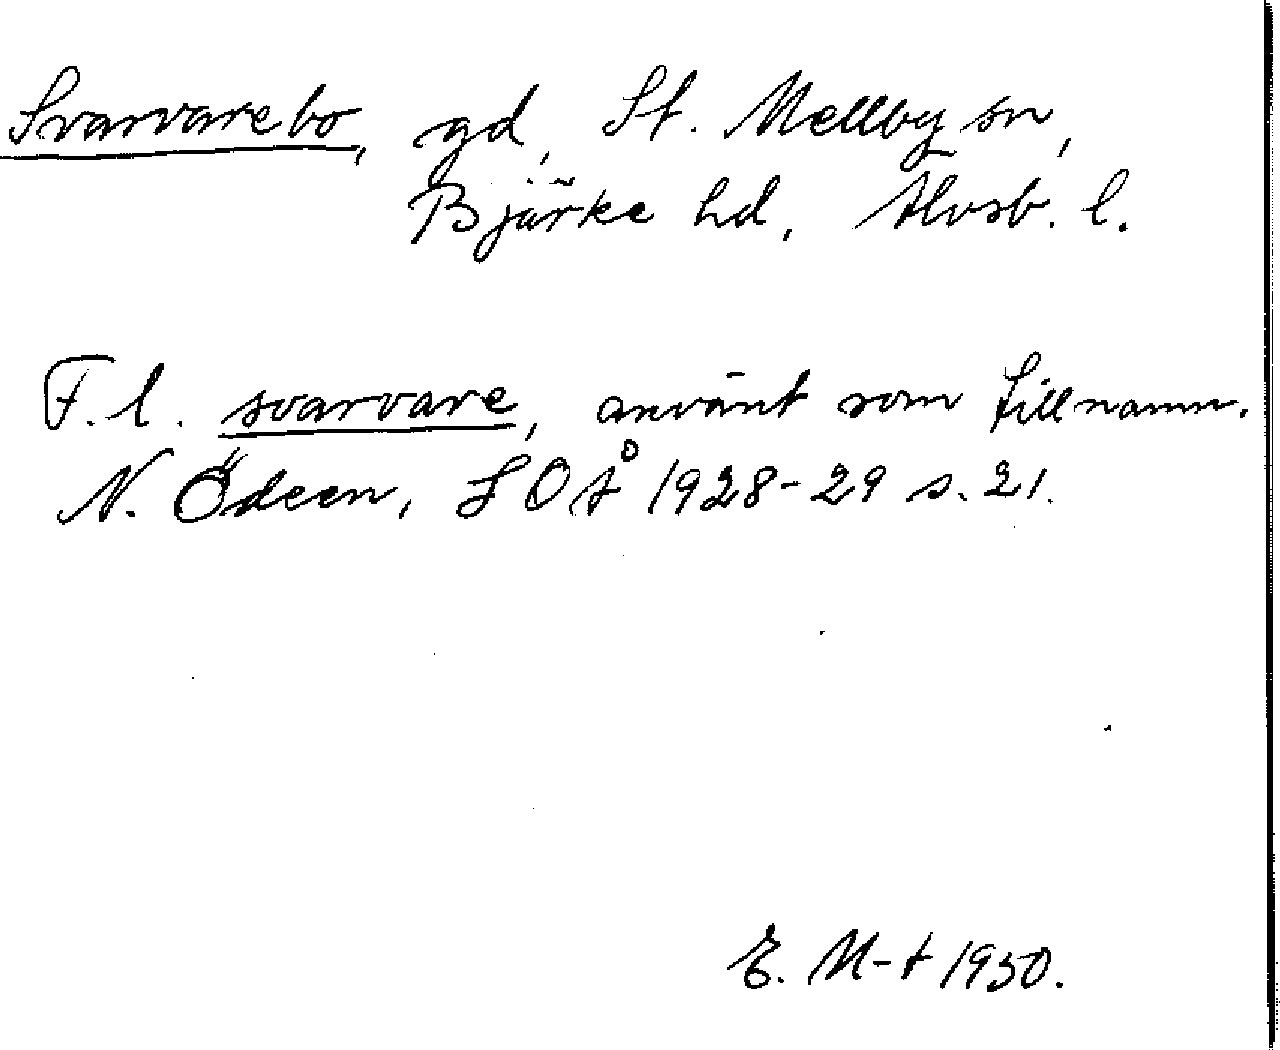 Svarvarebo, gd, St. Mellby sn,
Bjärke hd, Älvsb. l.
F. l. svarvare, använt som tillnamn.
N. Ödeen, SOÅ 1928-29 s. 21.
E. M-t 1930.